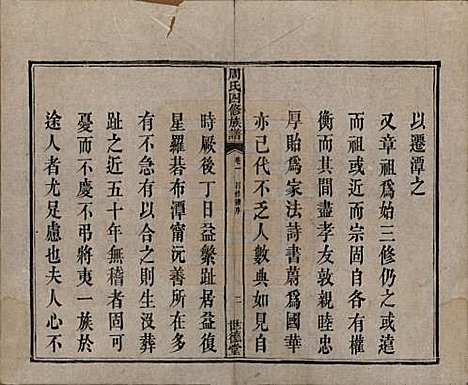 以遷潭之
又章祖爲始三修仍之遠
而祖或近而宗固自各有權
衡而其間盡孝友敦親睦忠
厚貽爲家法詩書蔚爲國華
亦已代不乏人數典如見自
周氏四修族譜
卷一
二
世德堂
時厥後丁日益繁趾居益復
星羅碁布潭甯沅善所在多
有不急有以合之則生没葬
趾之近五十年無稽者固可
憂而不慶不弔將夷一族於
途人者尤足慮也夫人心不